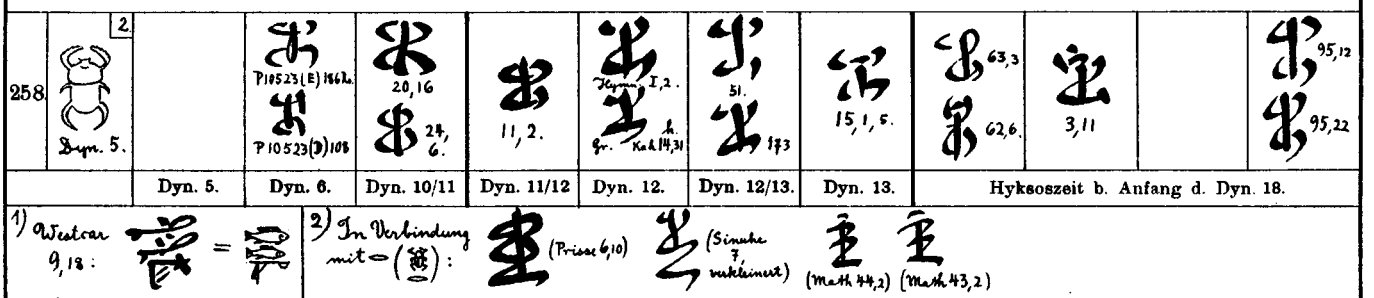 2.
258.
Dyn. 5.
P10523(E)186a.
P10523(D)108
20,16
24,
6.
11,2.
Hymn. I,2.
Gr. Kah 14,31
h.
51.
173
15,1,5.
63,3
62,6.
3,11
95,12
95,22
Dyn. 5. Dyn. 6. Dyn. 10/11 Dyn. 11/12 Dyn. 12. Dyn. 12/13. Dyn. 13. Hyksoszeit b. Anfang d. Dyn. 18.
1) Westcar
9,18: =
2) In Verbindung
mit ( ) : (Prisse 6,10)
(Sinuhe
7,
verkleinert)
(Math 44,2) (Math 43,2)